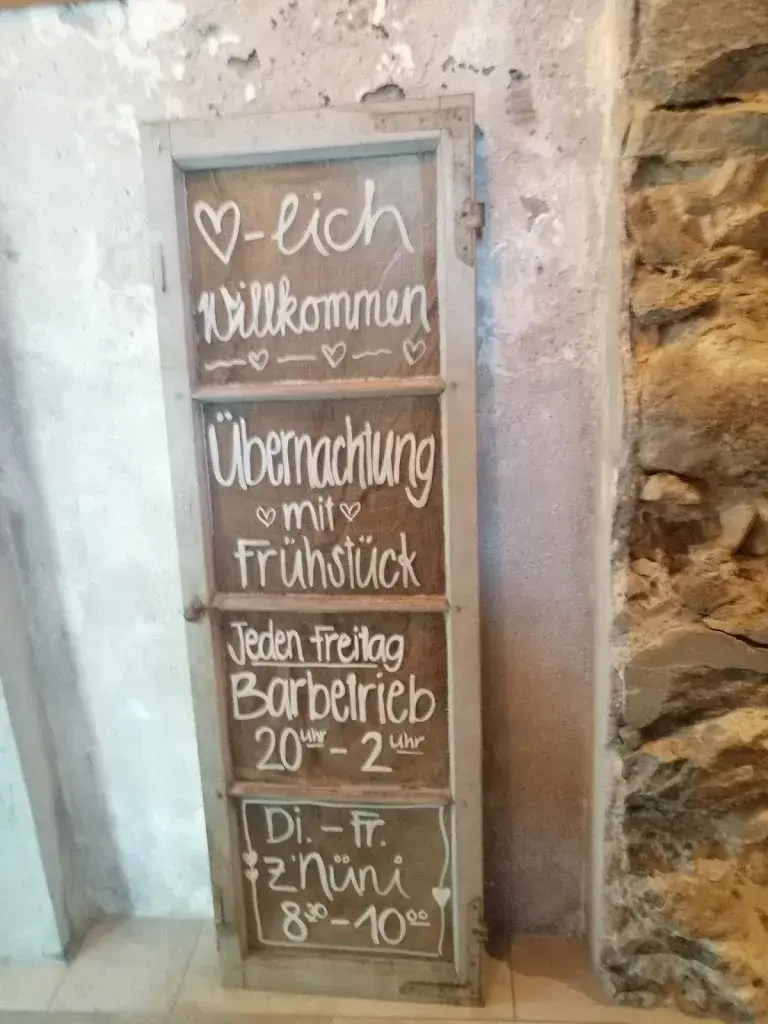 ♡-lich
Willkommen
Übernachtung
♡ mit ♡
Frühstück
Jeden Freitag
Barbetrieb
20 Uhr - 2 Uhr
Di. - Fr.
z'Nüni
8³⁰ - 10⁰⁰